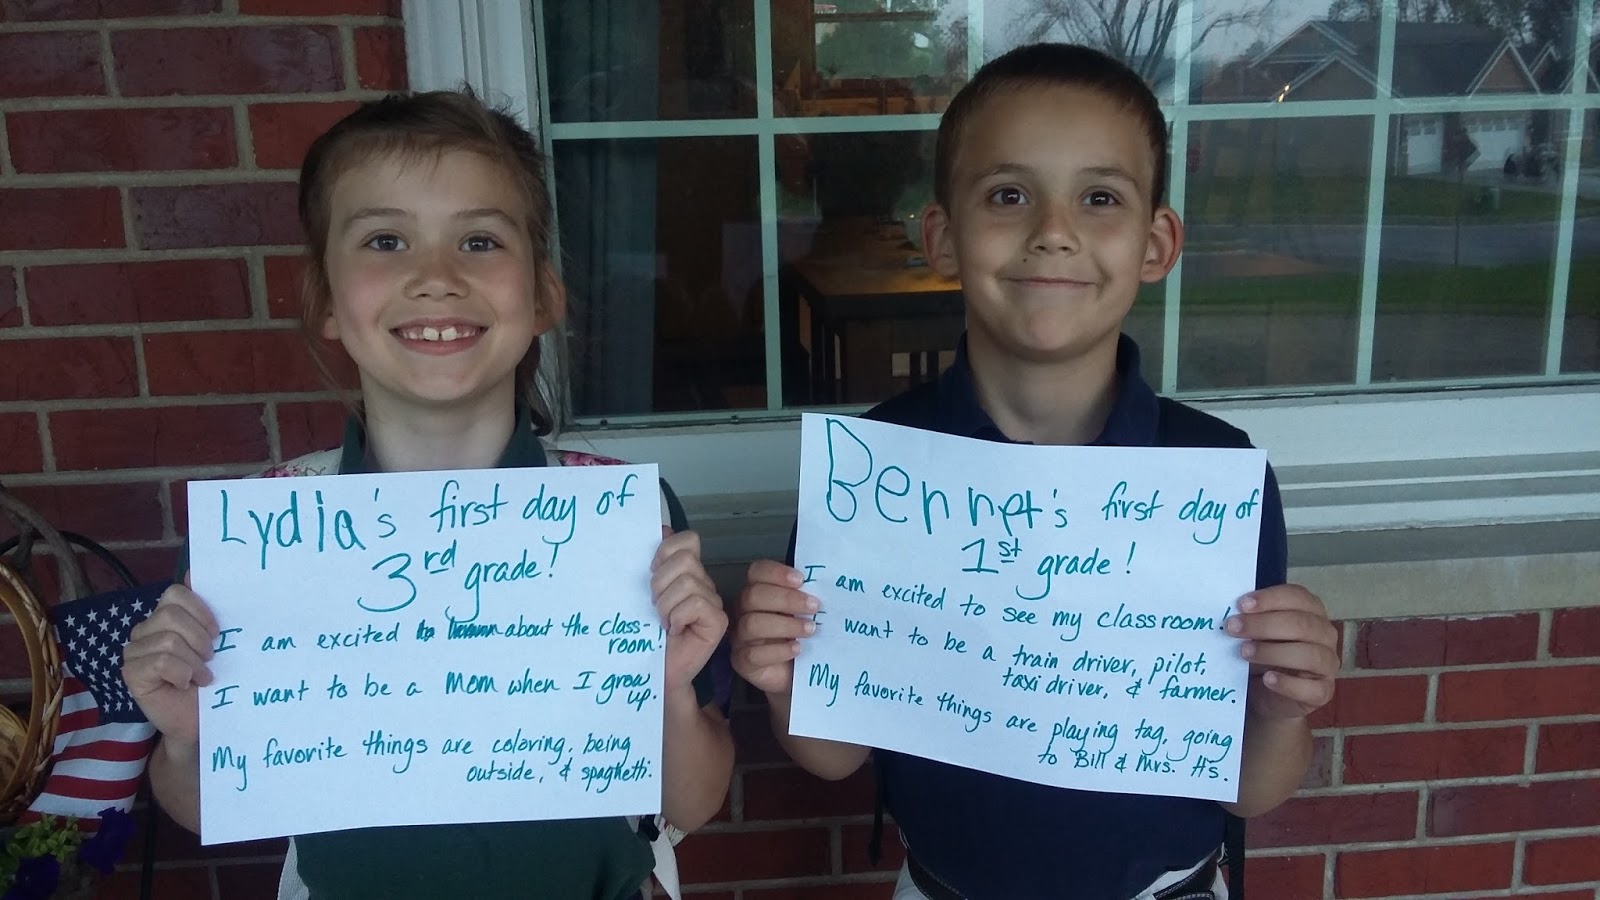 Lydia's first day of
3rd grade!
I am excited about the class-
room!
I want to be a Mom when I grow
up.
My favorite things are coloring, being
outside, & spaghetti.
Bennet's first day of
1st grade!
I am excited to see my classroom!
I want to be a train driver, pilot,
taxi driver, & farmer.
My favorite things are playing tag, going
to Bill & Mrs. H's.